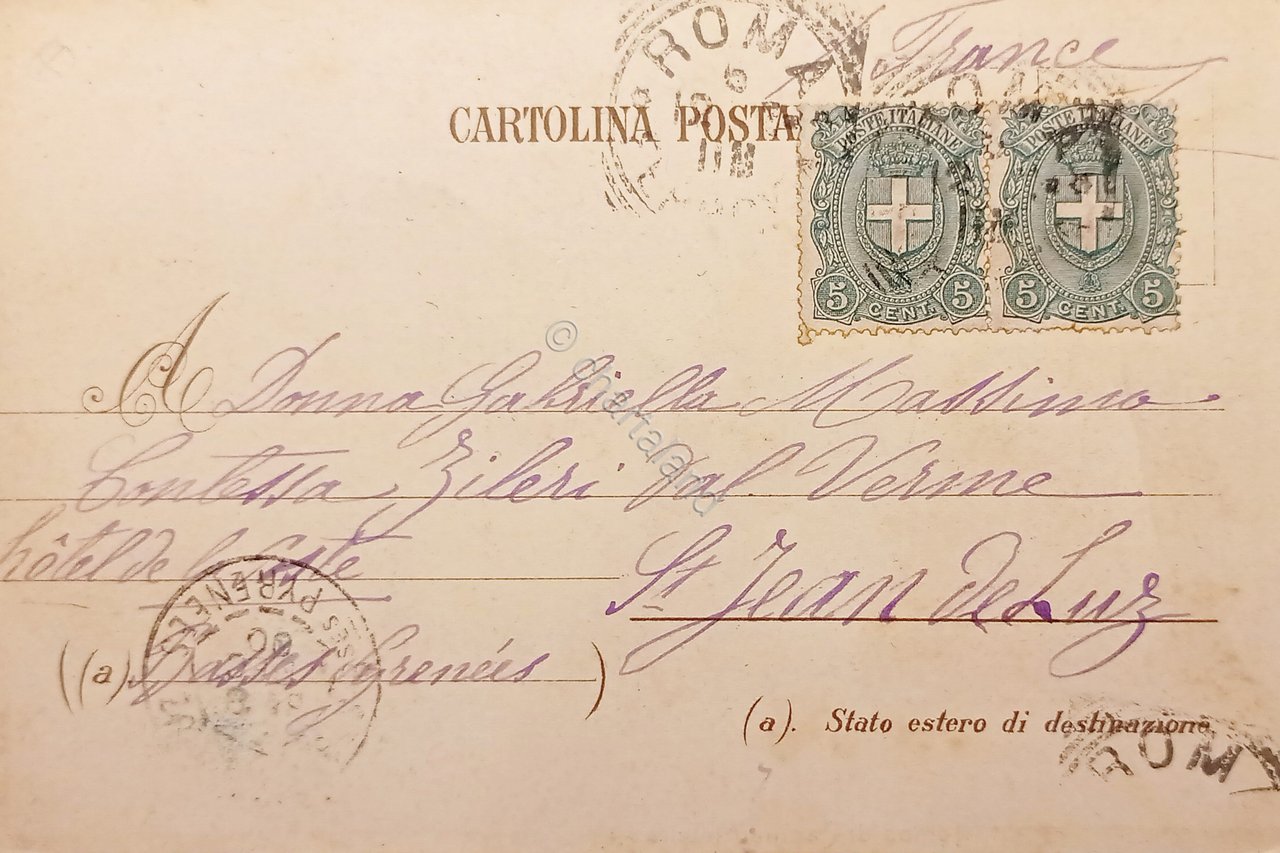 France
ROMA
6
CARTOLINA POSTA
POSTE ITALIANE POSTE ITALIANE
5 CENT. 5 5 CENT. 5
© chartaland
A Donna Gabriella Massimo
Contessa Zileri dal Verme
hôtel de la Poste
St Jean de Luz
(a) Basses Pyrenées
PYRENEES
(a). Stato estero di destinazione
ROM